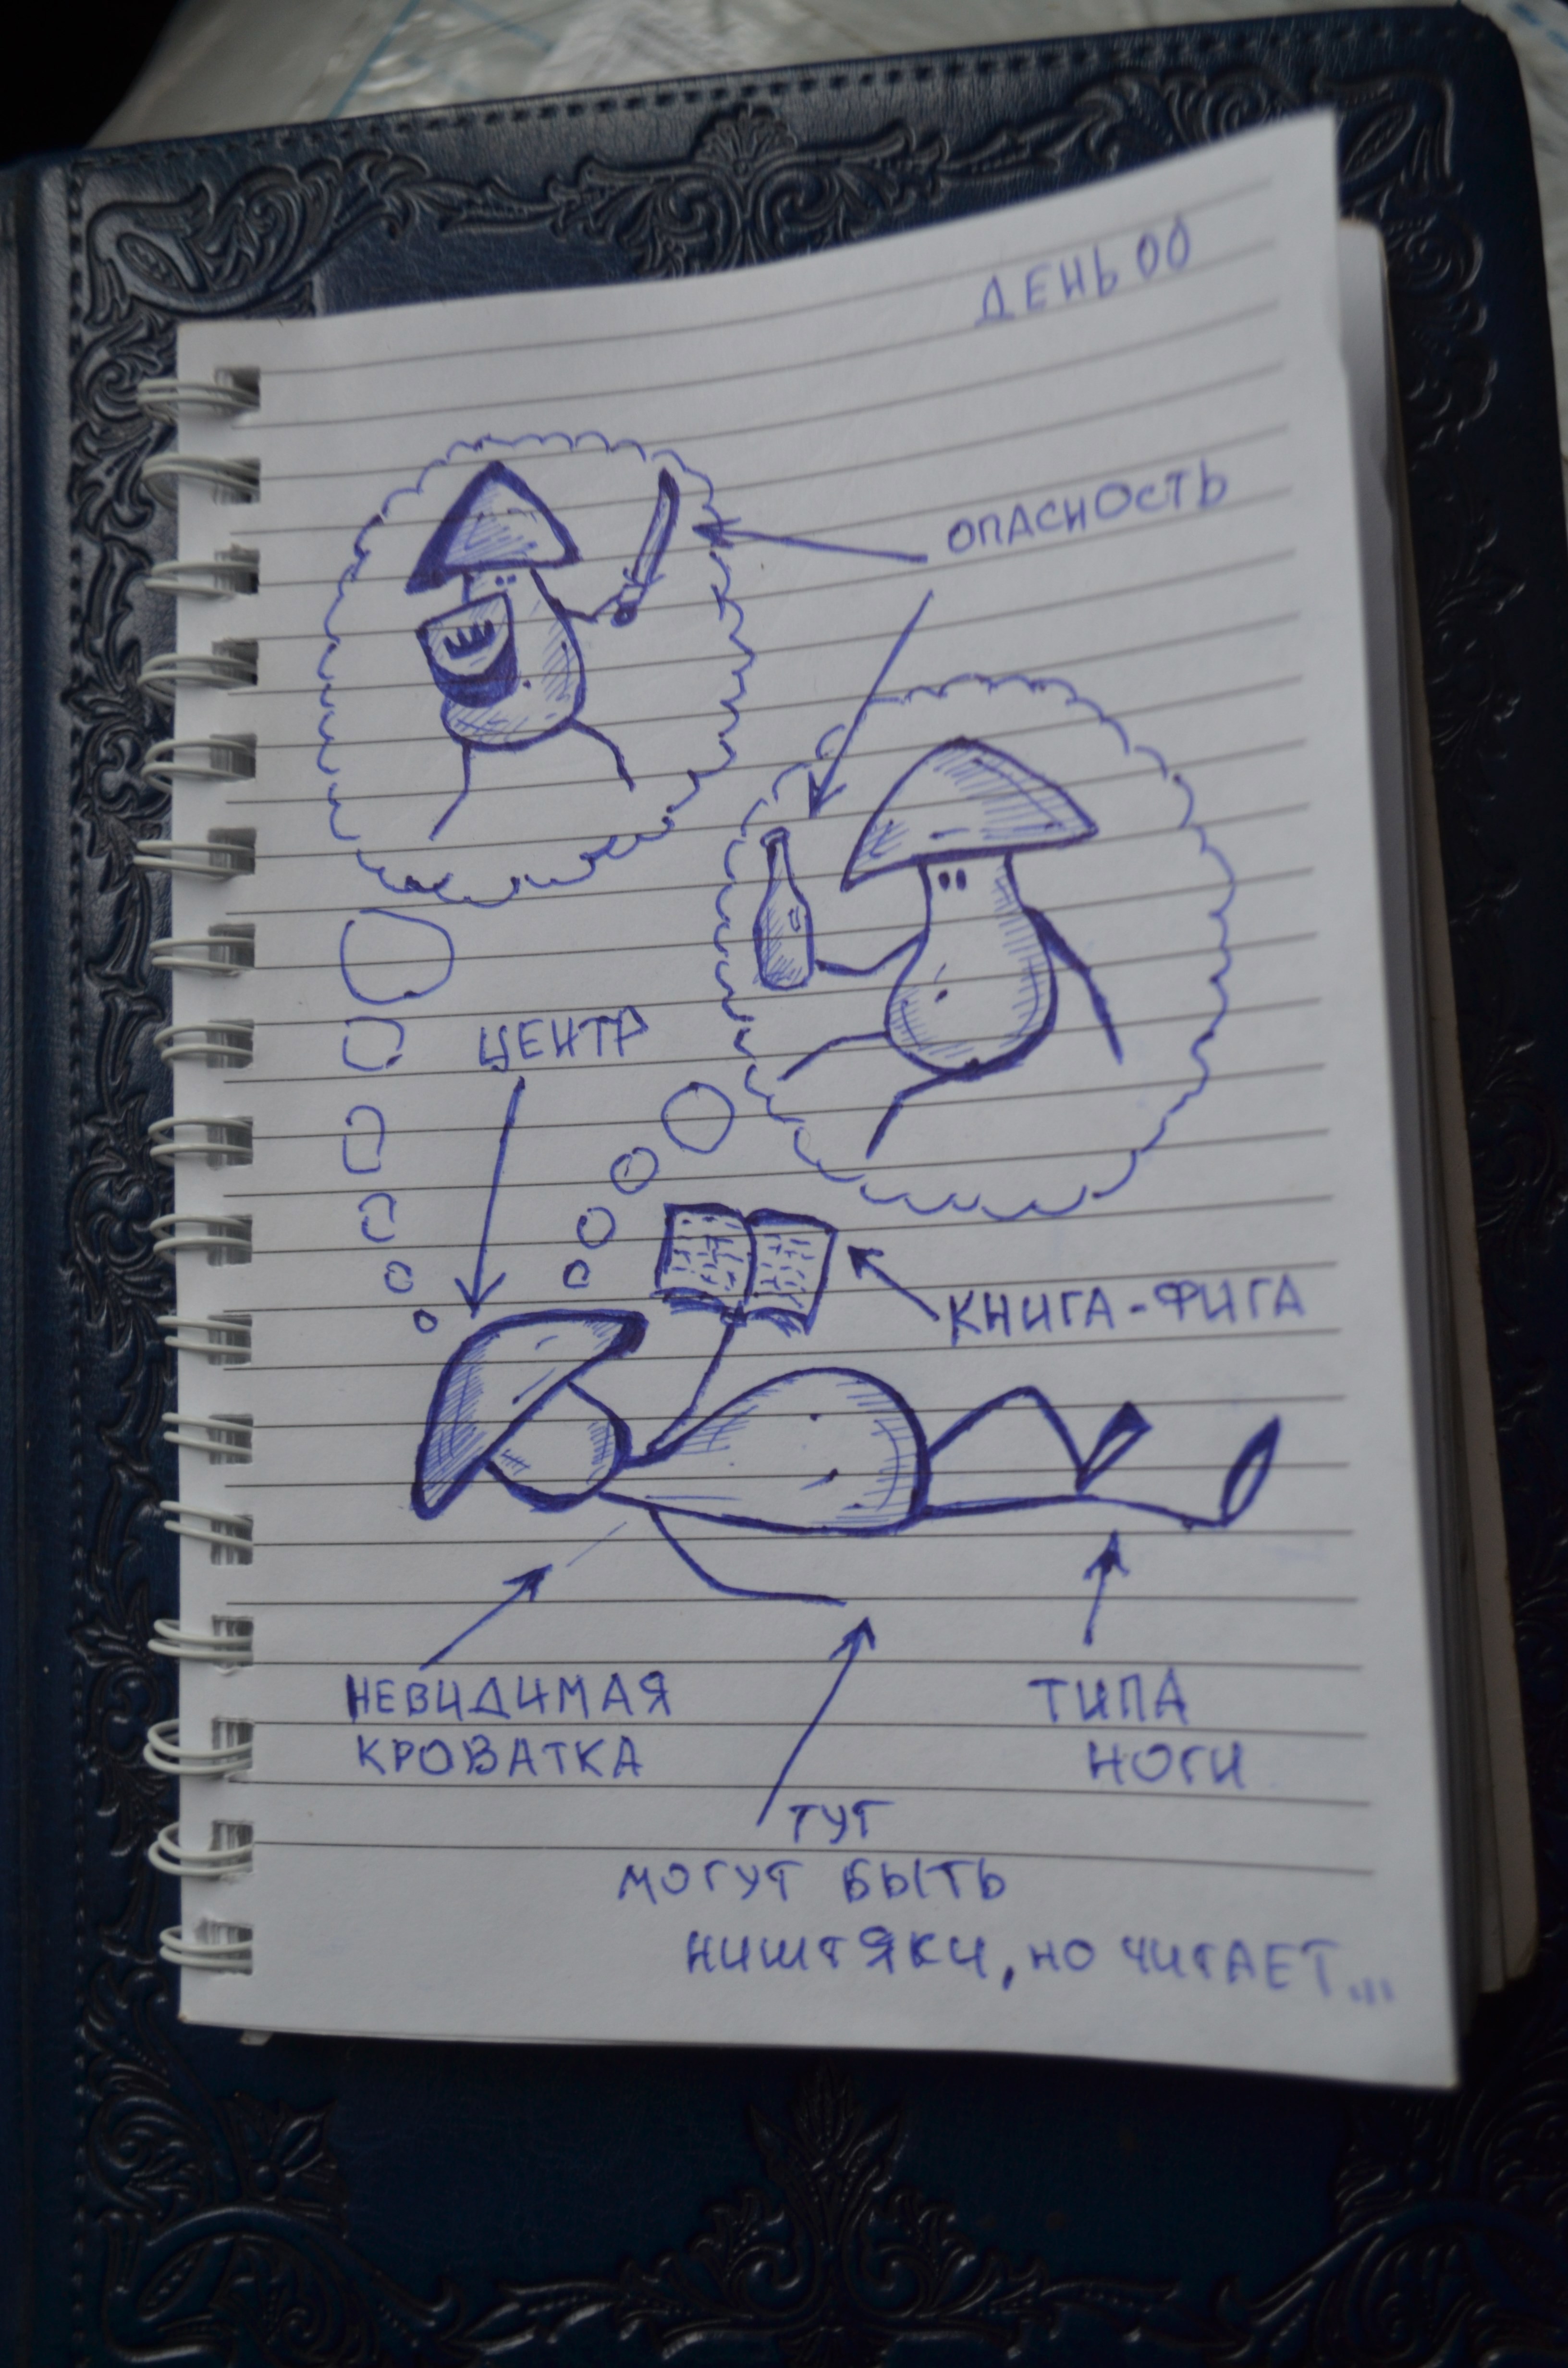 ДЕНЬ 00
ОПАСНОСТЬ
ЦЕНТР
КНИГА-ФИГА
НЕВИДИМАЯ
КРОВАТКА
ТИПА
НОГИ
ТУТ
МОГУТ БЫТЬ
НИШТЯКИ, НО ЧИТАЕТ...